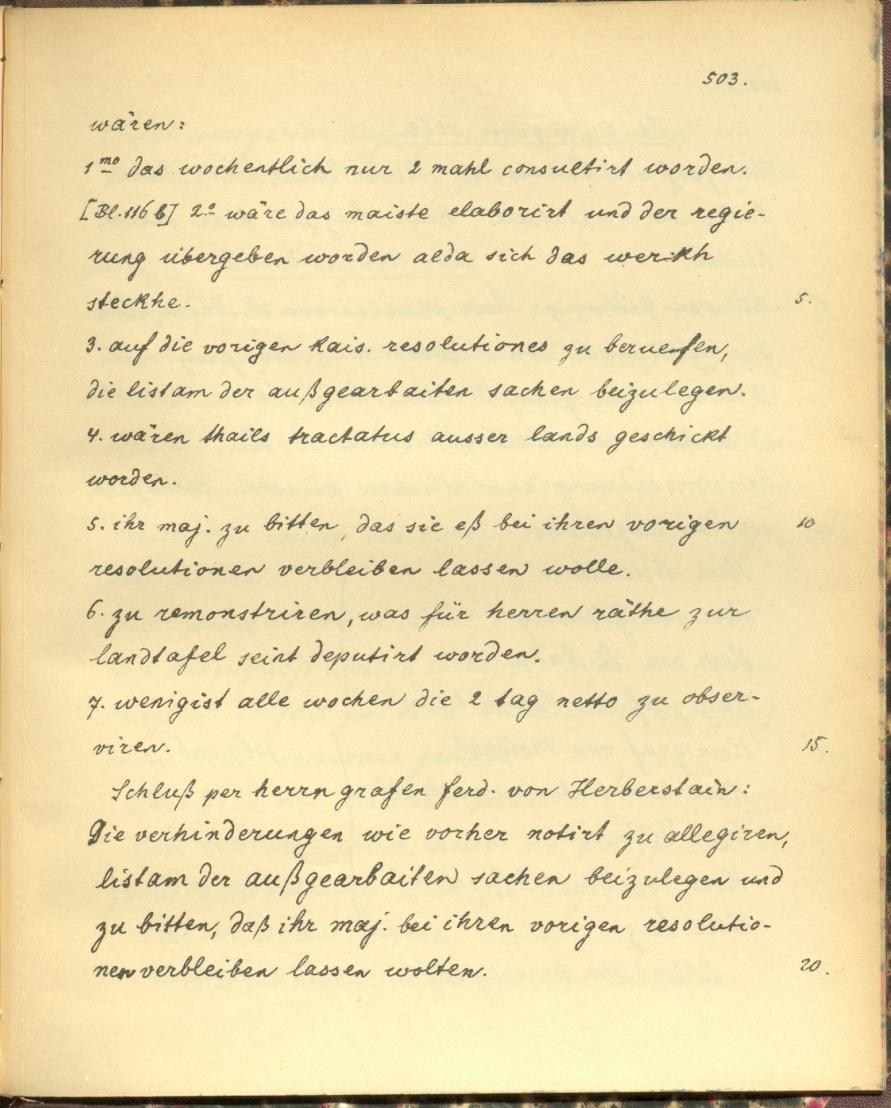 503.
wären:
1mo das wochentlich nur 2 mahl consultirt worden.
[Bl. 116 b] 2.o wäre das maiste elaborirt und der regie-
rung übergeben worden alda sich das werkh
steckhe. 5.
3. auf die vorigen kais. resolutiones zu beruefen,
die listam der außgearbaiten sachen beizulegen.
4. wären thails tractatus ausser lands geschickt
worden.
5. ihr maj. zu bitten, das sie eß bei ihren vorigen 10
resolutionen verbleiben lassen wolle.
6. zu remonstriren, was für herren räthe zur
landtafel seint deputirt worden.
7. wenigist alle wochen die 2 tag netto zu obser-
viren. 15.
Schluß per herrn grafen ferd. von Herberstain:
Die verhinderungen wie vorher notirt zu allegiren,
listam der außgearbaiten sachen beizulegen und
zu bitten, daß ihr maj. bei ihren vorigen resolutio-
nen verbleiben lassen wolten. 20.